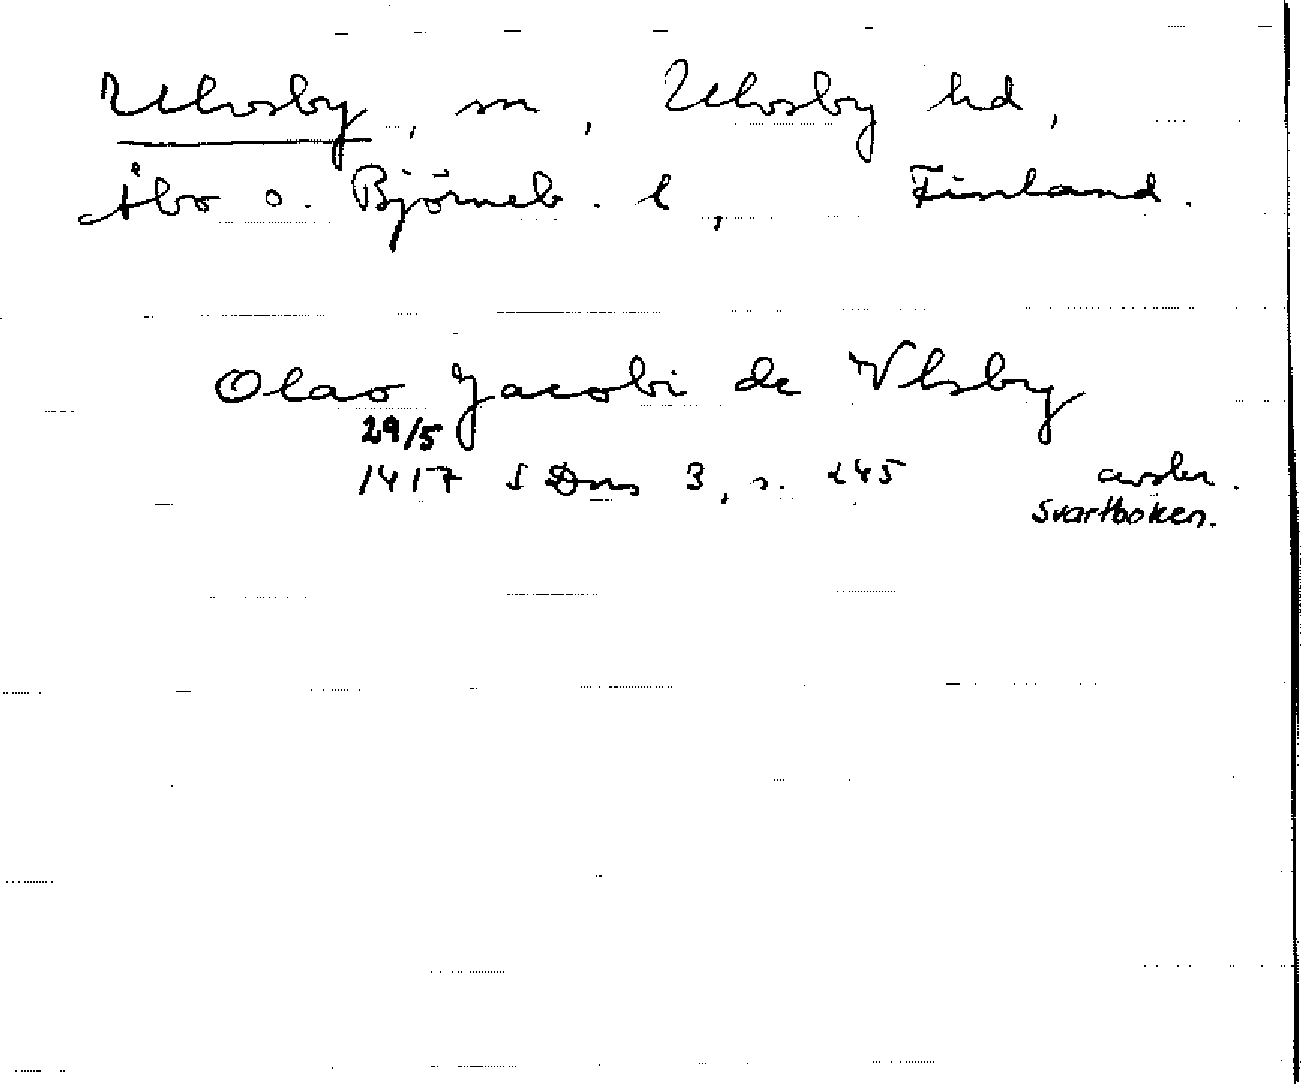 Ulvsby, sn, Ulvsby hd,
Åbo o. Björneb. l, Finland.
Olao Jacobi de Vlsby
29/5
1417 SDns 3, s. 245 avskr.
Svartboken.